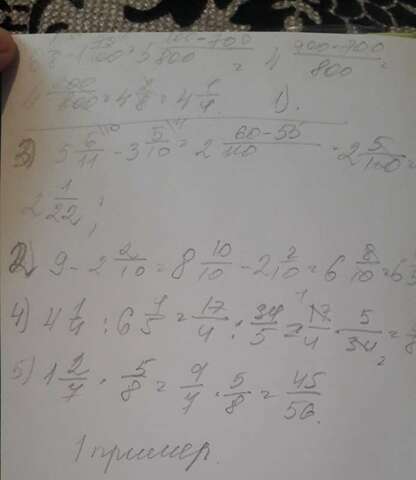 = 4 900-700/800 =
= 4 1/4 1).
3) 5 6/11 - 3 5/10 = 2 60-55/110 = 2 5/110 =
2 1/22;
2) 9 - 2 2/10 = 8 10/10 - 2 2/10 = 6 8/10 = 6
4) 4 1/4 : 6 4/5 = 17/4 : 34/5 = 17/4 · 5/34 =
5) 1 2/7 · 5/8 = 9/7 · 5/8 = 45/56.
1 пример.